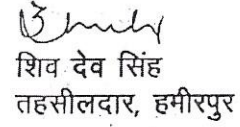 शिव देव सिंह
तहसीलदार, हमीरपुर